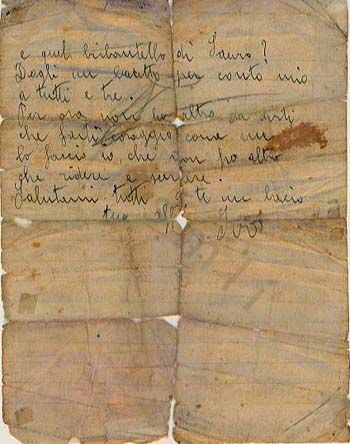 e quel birbantello di Sauro?
Dagli un bacetto per conto mio
a tutti e tre.
Per ora non ho altro da dirti
che farti coraggio come me
lo faccio io, che non fo altro
che ridere e
Salutami tutti e a te un bacio
tuo